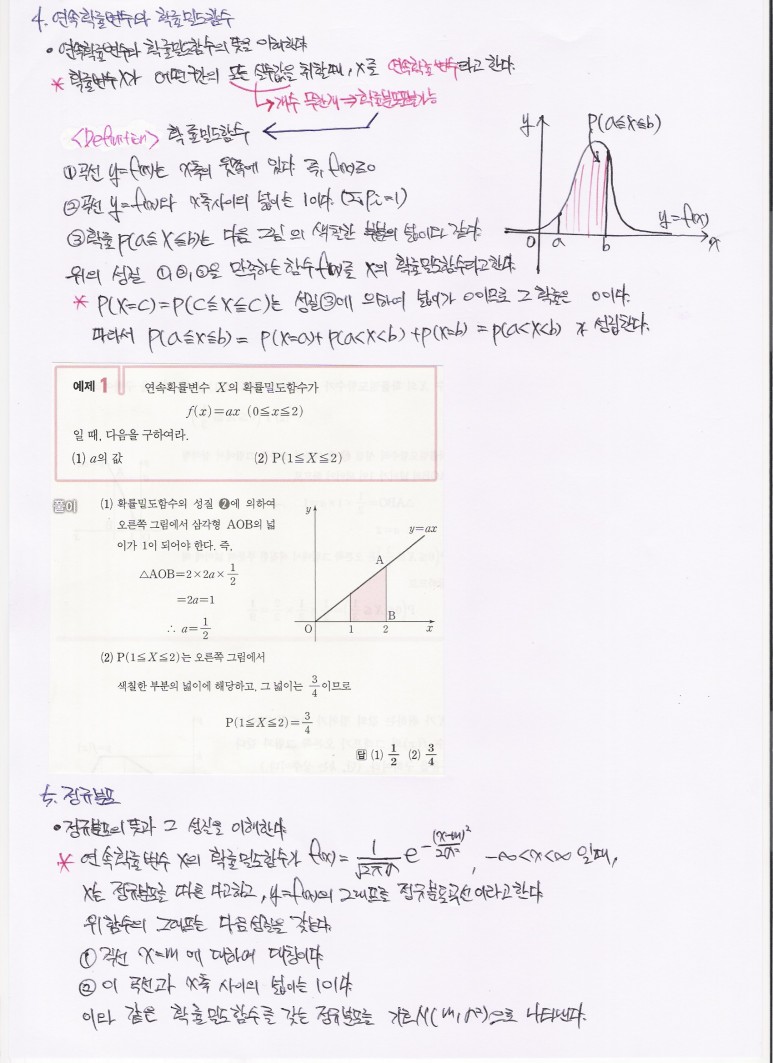 4. 연속확률변수와 확률밀도함수
• 연속확률변수와 확률밀도함수의 뜻을 이해한다
* 확률변수 X가 어떤 구간의 모든 실수값을 취할때, X를 연속확률변수라고 한다.
↳ 개수 무한개 ⇒ 확률분포표불가능
<Definition> 확률밀도함수
① 곡선 y=f(x)는 x축의 윗쪽에 있다. 즉, f(x)≥0
② 곡선 y=f(x)와 x축사이의 넓이는 1이다. (Σpi=1)
③ 확률 P(a≦X≦b)는 다음 그림의 색칠한 부분의 넓이와 같다.
위의 성질 ①,②,③을 만족하는 함수 f(x)를 X의 확률밀도함수라고한다.
y
P(a≦X≦b)
y=f(x)
0 a b x
* P(X=c)=P(c≦X≦c)는 성질③에 의하여 넓이가 0이므로 그 확률은 0이다.
따라서 P(a≦X≦b) = P(X=a)+P(a<X<b)+P(X=b) = P(a<X<b) 가 성립한다.
예제 1 연속확률변수 X의 확률밀도함수가
f(x)=ax (0≦x≦2)
일 때, 다음을 구하여라.
(1) a의 값 (2) P(1≦X≦2)
풀이 (1) 확률밀도함수의 성질 ❷에 의하여
오른쪽 그림에서 삼각형 AOB의 넓
이가 1이 되어야 한다. 즉,
△AOB=2×2a×1/2
=2a=1
∴ a=1/2
y
y=ax
A
B
O 1 2 x
(2) P(1≦X≦2)는 오른쪽 그림에서
색칠한 부분의 넓이에 해당하고, 그 넓이는 3/4이므로
P(1≦X≦2)=3/4
답 (1) 1/2 (2) 3/4
5. 정규분포
• 정규분포의 뜻과 그 성질을 이해한다
* 연속확률변수 X의 확률밀도함수가 f(x)= 1/√2πσ e^-(x-m)²/2σ², -∞<x<∞ 일때,
X는 정규분포를 따른다고하고, y=f(x)의 그래프를 정규분포곡선이라고한다
위 함수의 그래프는 다음성질을 갖는다.
① 직선 x=m에 대하여 대칭이다
② 이 곡선과 x축 사이의 넓이는 1이다
이와 같은 확률밀도함수를 갖는 정규분포를 기호 N(m, σ²)으로 나타낸다.